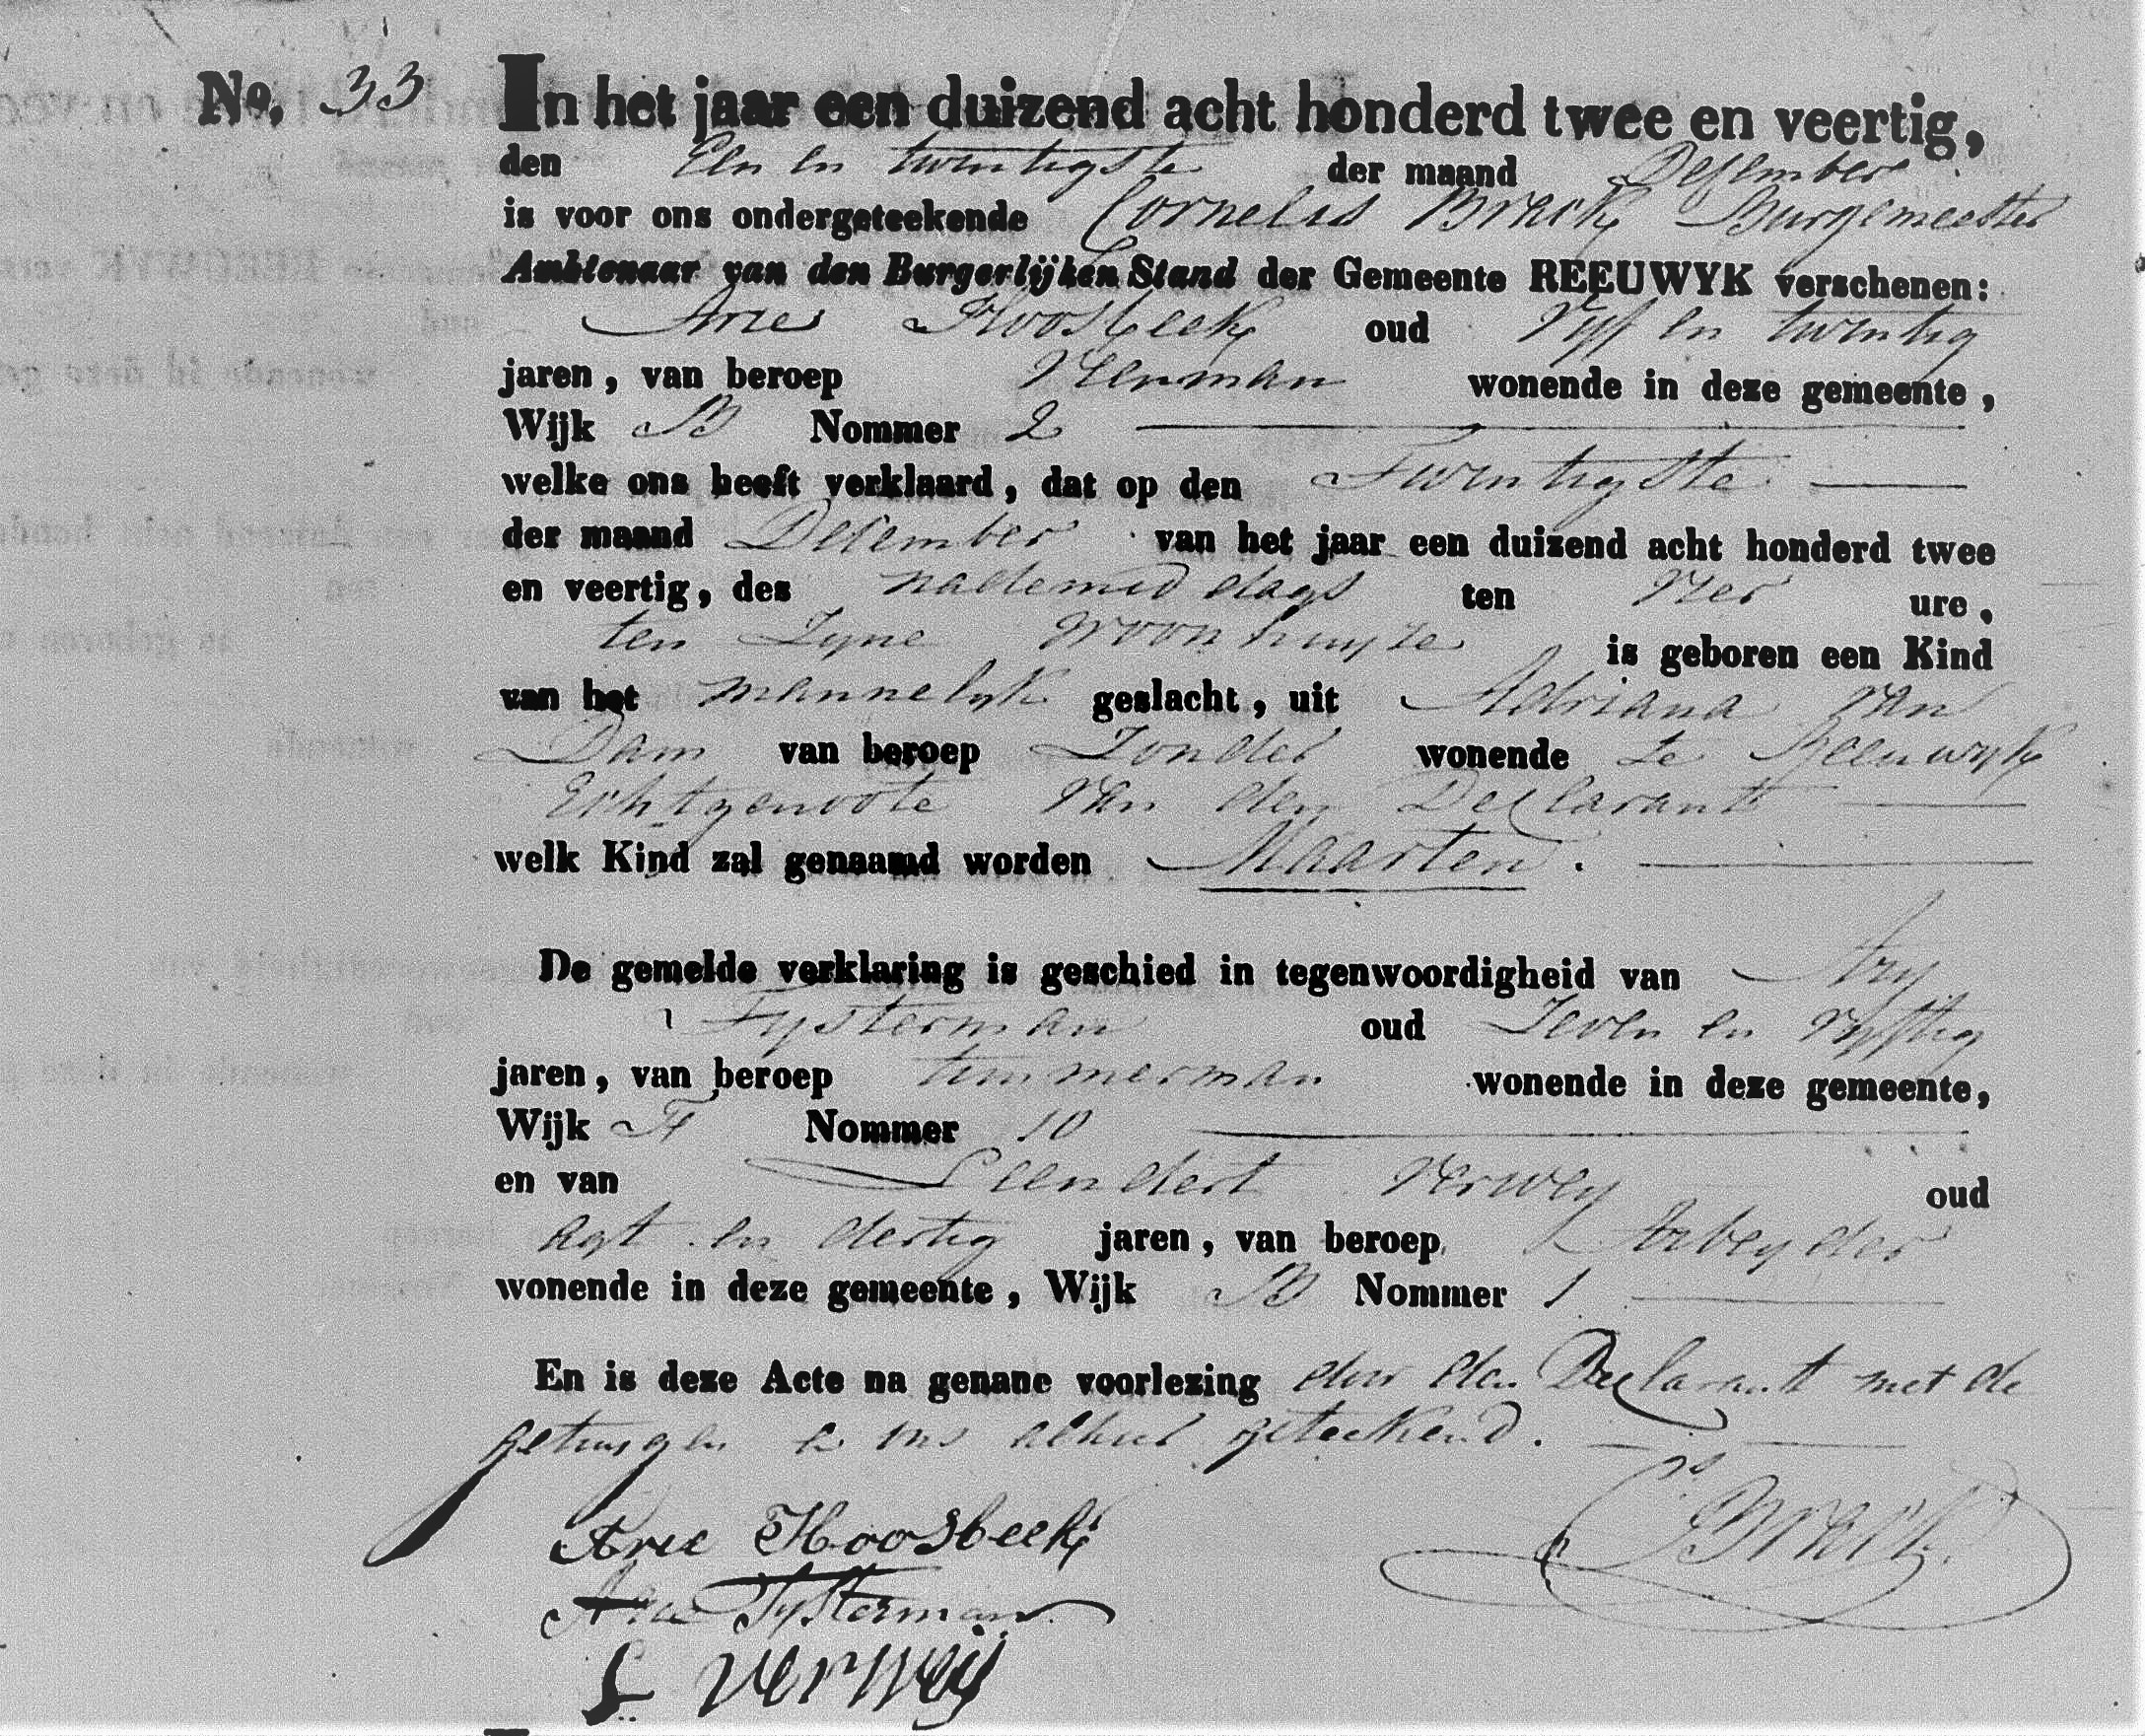 No. 33
In het jaar een duizend acht honderd twee en veertig,
den Een en twintigste der maand December
is voor ons ondergeteekende Cornelis Brack Burgemeester
Ambtenaar van den Burgerlijken Stand der Gemeente REEUWYK verschenen:
Arie Hoosbeek oud Vyf en twintig
jaren, van beroep Veenman wonende in deze gemeente,
Wijk B Nommer 2
welke ons heeft verklaard, dat op den Twintigste
der maand December van het jaar een duizend acht honderd twee
en veertig, des nademiddags ten Vier ure,
ten Zyne Woonhuyze is geboren een Kind
van het mannelyk geslacht, uit Adriana van
Dam van beroep Zonder wonende te Reeuwyk
Echtgenoote van den Declarant
welk Kind zal genaamd worden Maarten.
De gemelde verklaring is geschied in tegenwoordigheid van Ary
Tysterman oud Zeven en vyftig
jaren, van beroep timmerman wonende in deze gemeente,
Wijk F Nommer 10
en van Leendert Verwey oud
agt en dertig jaren, van beroep Arbeyder
wonende in deze gemeente, Wijk B Nommer 1
En is deze Acte na genane voorlezing door den Declarant met de
getuygen en ons alhier geteekend.
Arie Hoosbeek
Arie Tysterman
L Verweij
Cs Brack